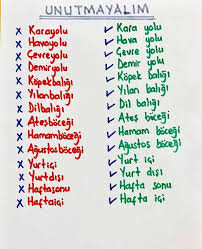 UNUTMAYALIM
x Karayolu ✓ Kara yolu
x Havayolu ✓ Hava yolu
x Çevreyolu ✓ Çevre yolu
x Demiryolu ✓ Demir yolu
x Köpekbalığı ✓ Köpek balığı
x Yılanbalığı ✓ Yılan balığı
x Dilbalığı ✓ Dil balığı
x Ateşböceği ✓ Ateş böceği
x Hamamböceği ✓ Hamam böceği
x Ağustosböceği ✓ Ağustos böceği
x Yurtiçi ✓ Yurt içi
x Yurtdışı ✓ Yurt dışı
x Haftasonu ✓ Hafta sonu
x Haftaiçi ✓ Hafta içi